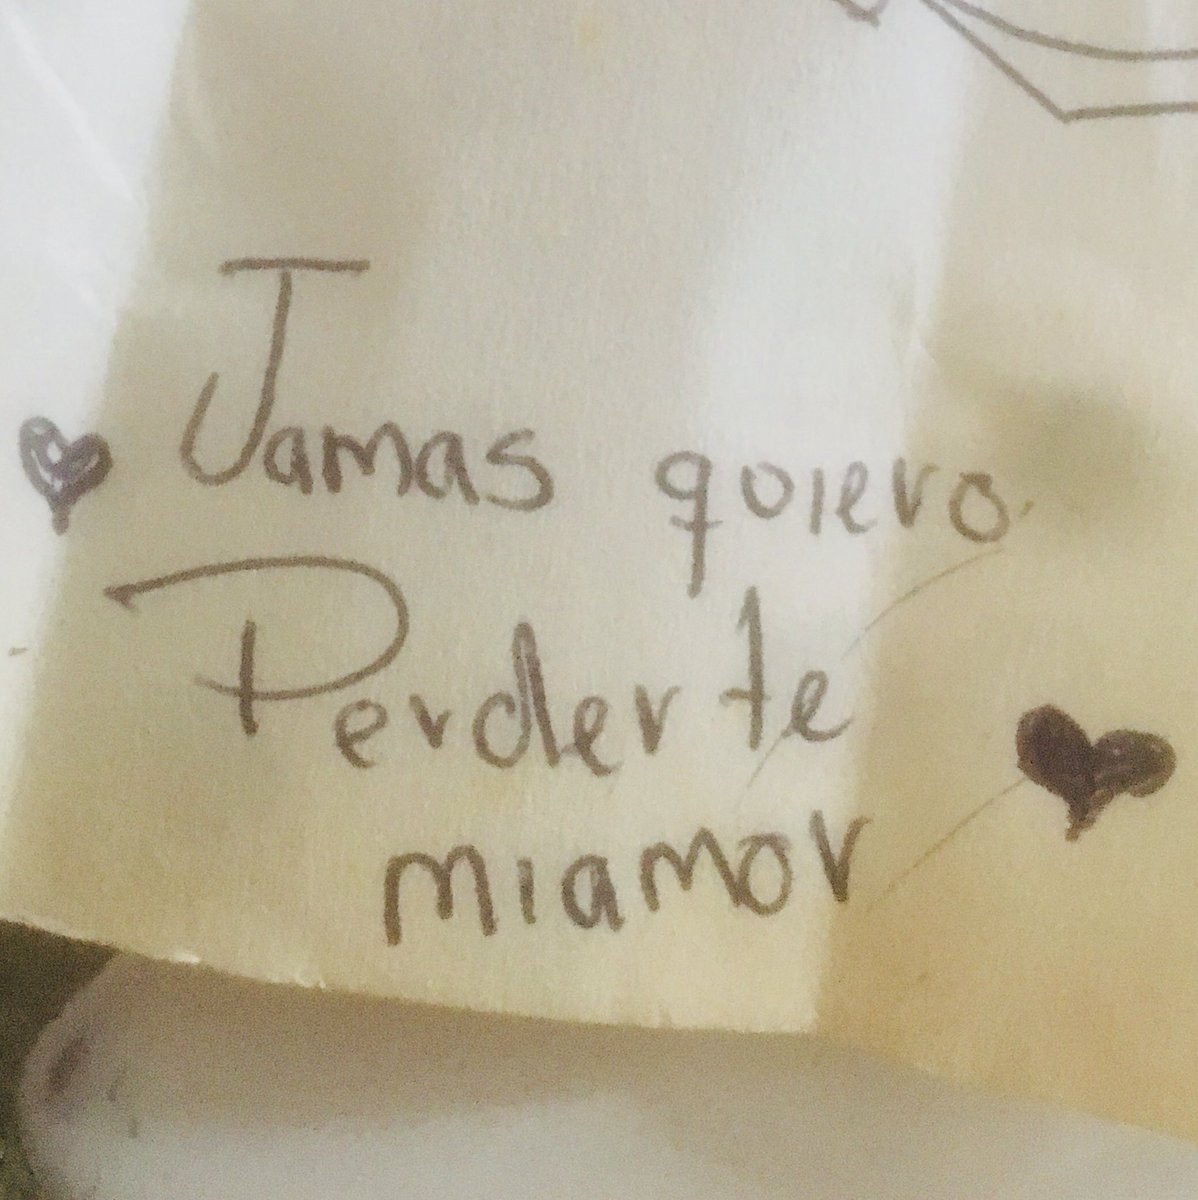 Jamas quiero
Perderte
miamor